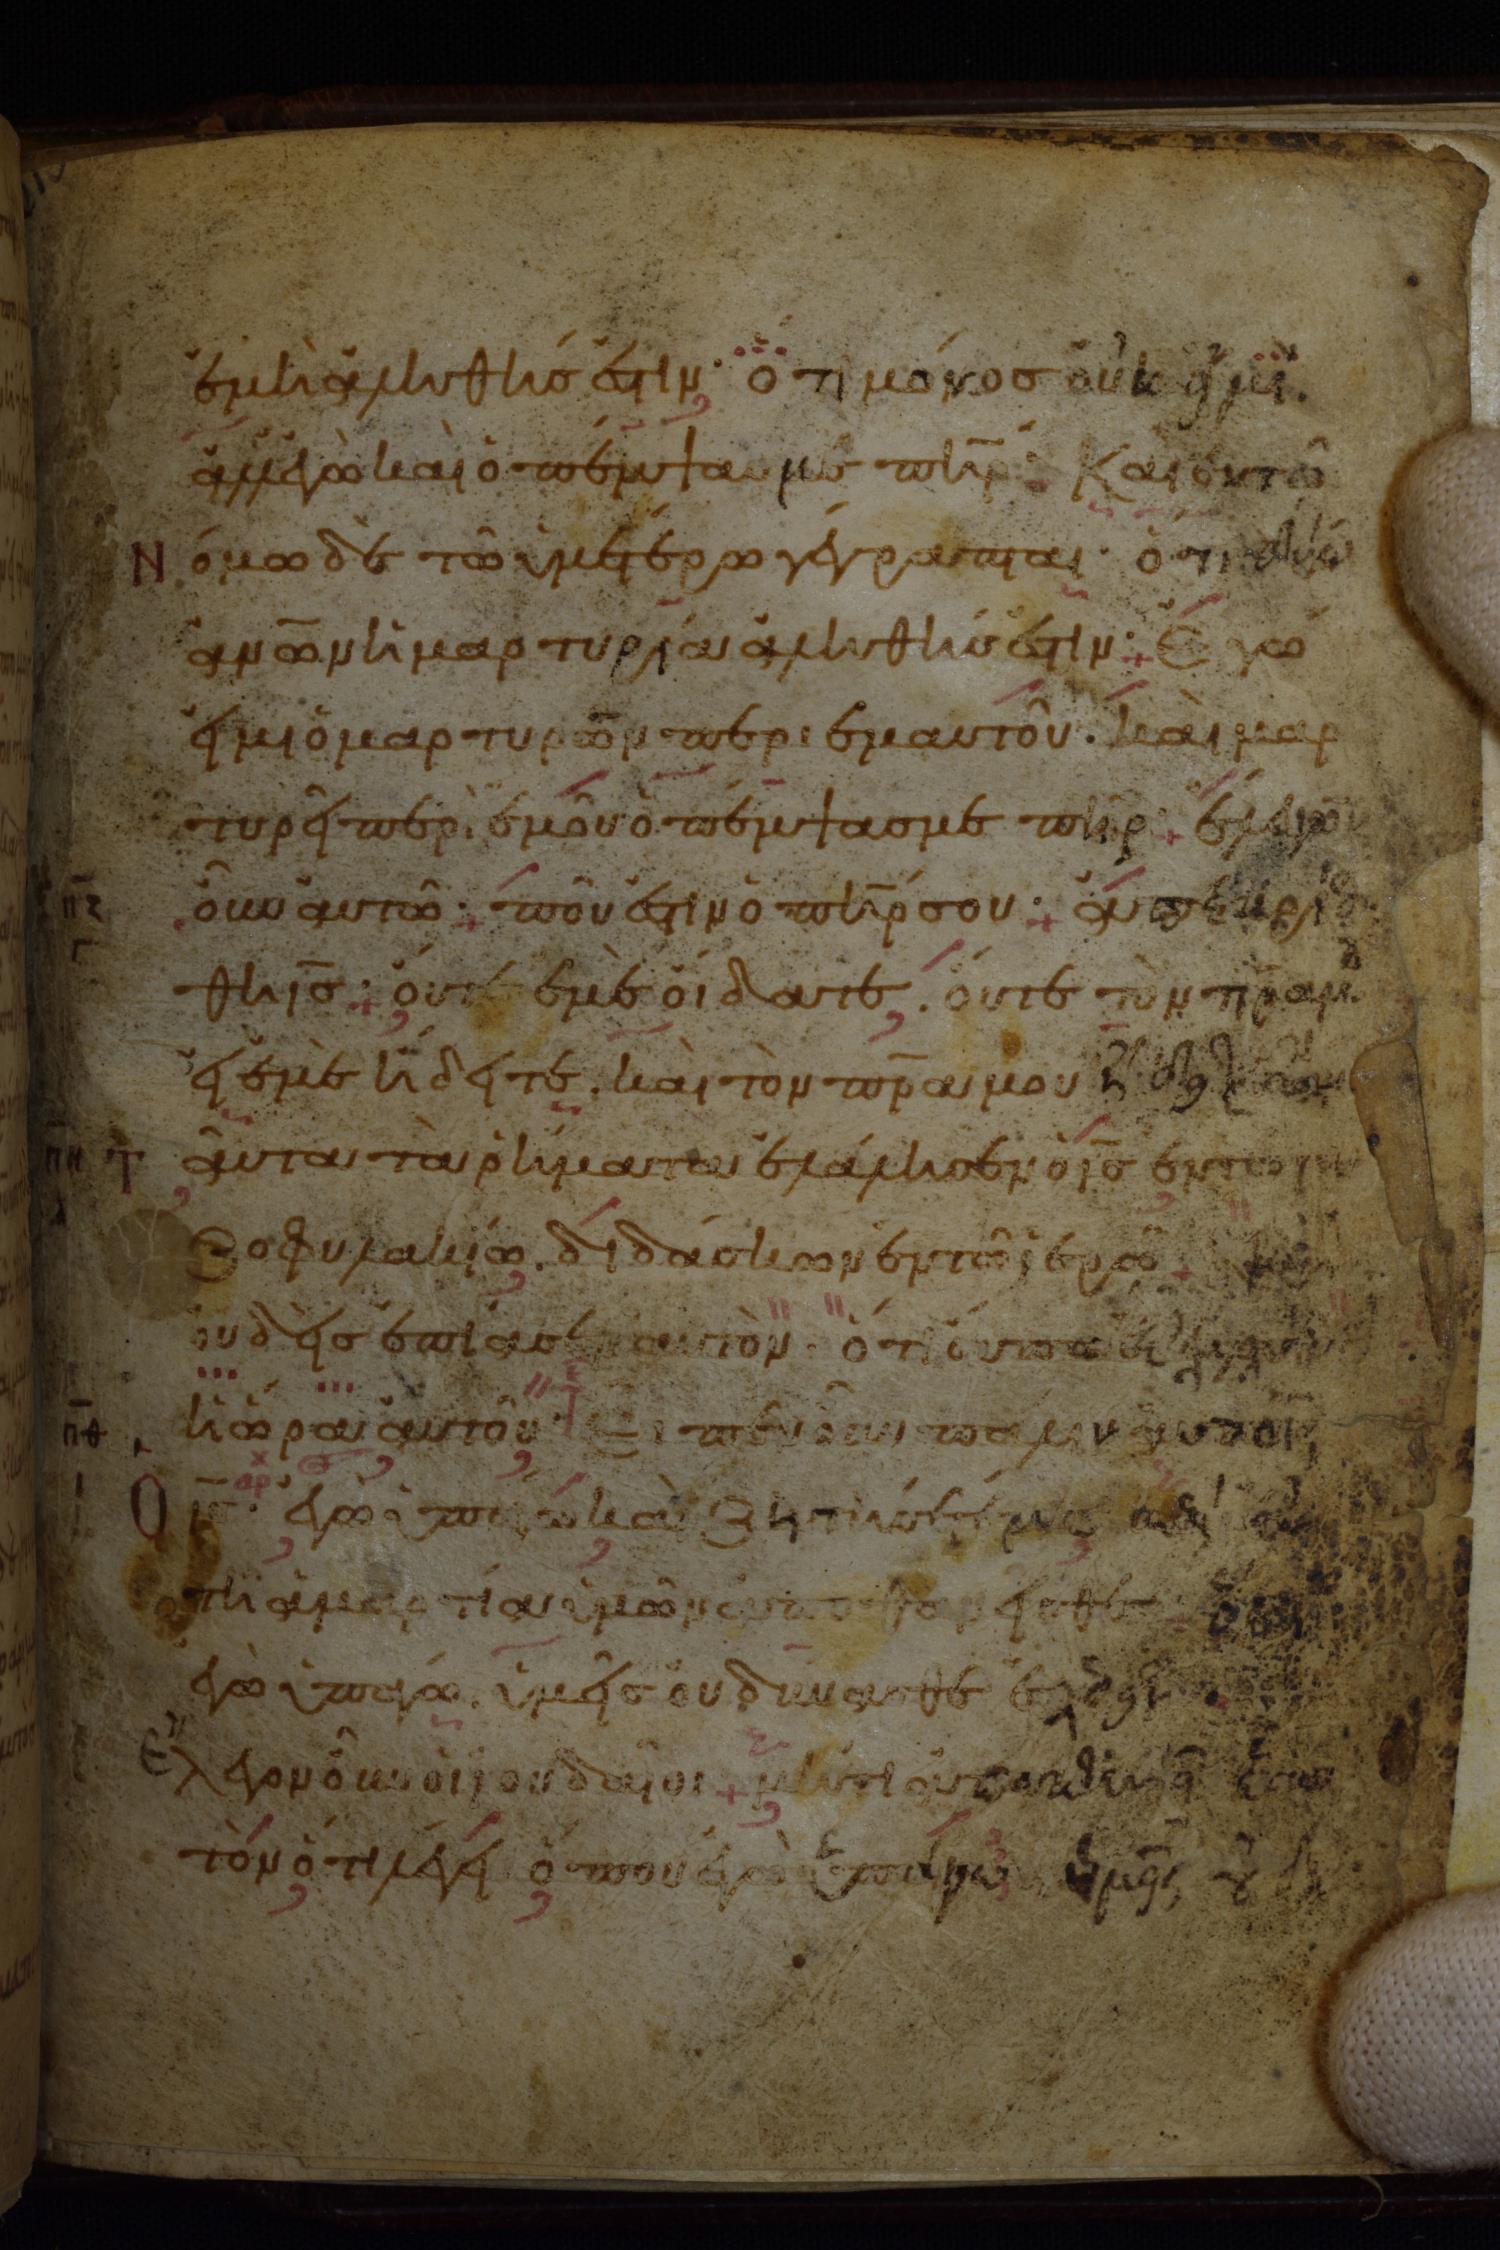 ἐμὴ ἀληθής ἐστιν· ὅτι μόνος οὐκ εἰμὶ.
ἀλλ' ἐγὼ καὶ ὁ πέμψας με πηρ· Καὶ ἐν τῶ
Νόμω δὲ τῶ ὑμετέρω γέγραπται· ὅτι δύο
ἀνων ἡ μαρτυρία ἀληθής ἐστιν· Ἐγώ
εἰμι ὁ μαρτυρῶν περι ἐμαυτοῦ. καὶ μαρ
τυρεῖ περὶ ἐμοῦ ὁ πέμψας με πηρ· ἔλεγον
οὖν αὐτῶ· ποῦ ἐστιν ὁ πηρ σου· ἀπεκρί
πζ
γ
θη ις· οὔτε ἐμὲ οἴδατε. οὔτε τὸν πρα μου·
εἰ ἐμὲ ἤδητε. καὶ τὸν πρα μου ἤδειτε ἂν
πη
Ταῦτα τὰ ῥήματα ἐλάλησεν ὁ ις ἐν τῶ γα
ζοφυλακίω. διδάσκων ἐν τῶ ἱερῶ
οὐδεὶς ἐπίασεν αὐτὸν· ὅτι οὔπω ἐληλύθει
πθ
ἡ ὥρα αὐτοῦ· Εἶπεν οὖν παλιν αὐτοῖς
Ο ις· ἐγὼ ὑπάγω καὶ ζητήσετέ με καὶ ἐν
τη ἁμαρτία ὑμῶν ἀποθανεῖσθε ὅπου
ἐγὼ ὑπάγω. ὑμεῖς οὐ δύνασθε ἐλθεῖν
Ἔλεγον οὖν οἱ ἰουδαῖοι μήτι ἀποκτενεῖ ἑαυ
τὸν ὅτι λέγει ὅπου ἐγὼ ὑπάγω ὑμεῖς οὐ δύ